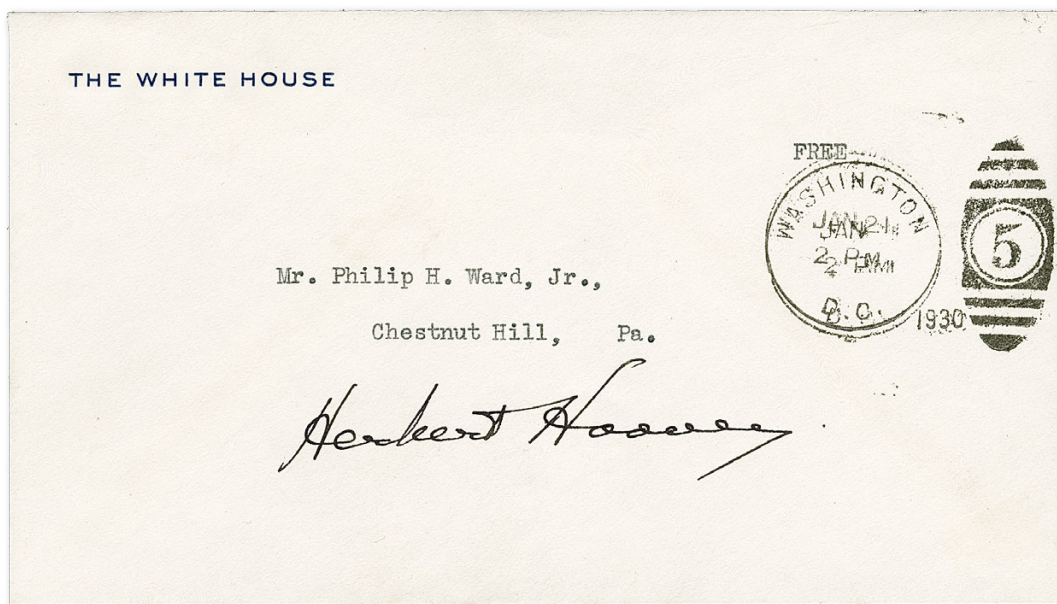 THE WHITE HOUSE
FREE
WASHINGTON
JAN 21
2 PM
D.C.
1930
5
Mr. Philip H. Ward, Jr.,
Chestnut Hill, Pa.
Herbert Hoover